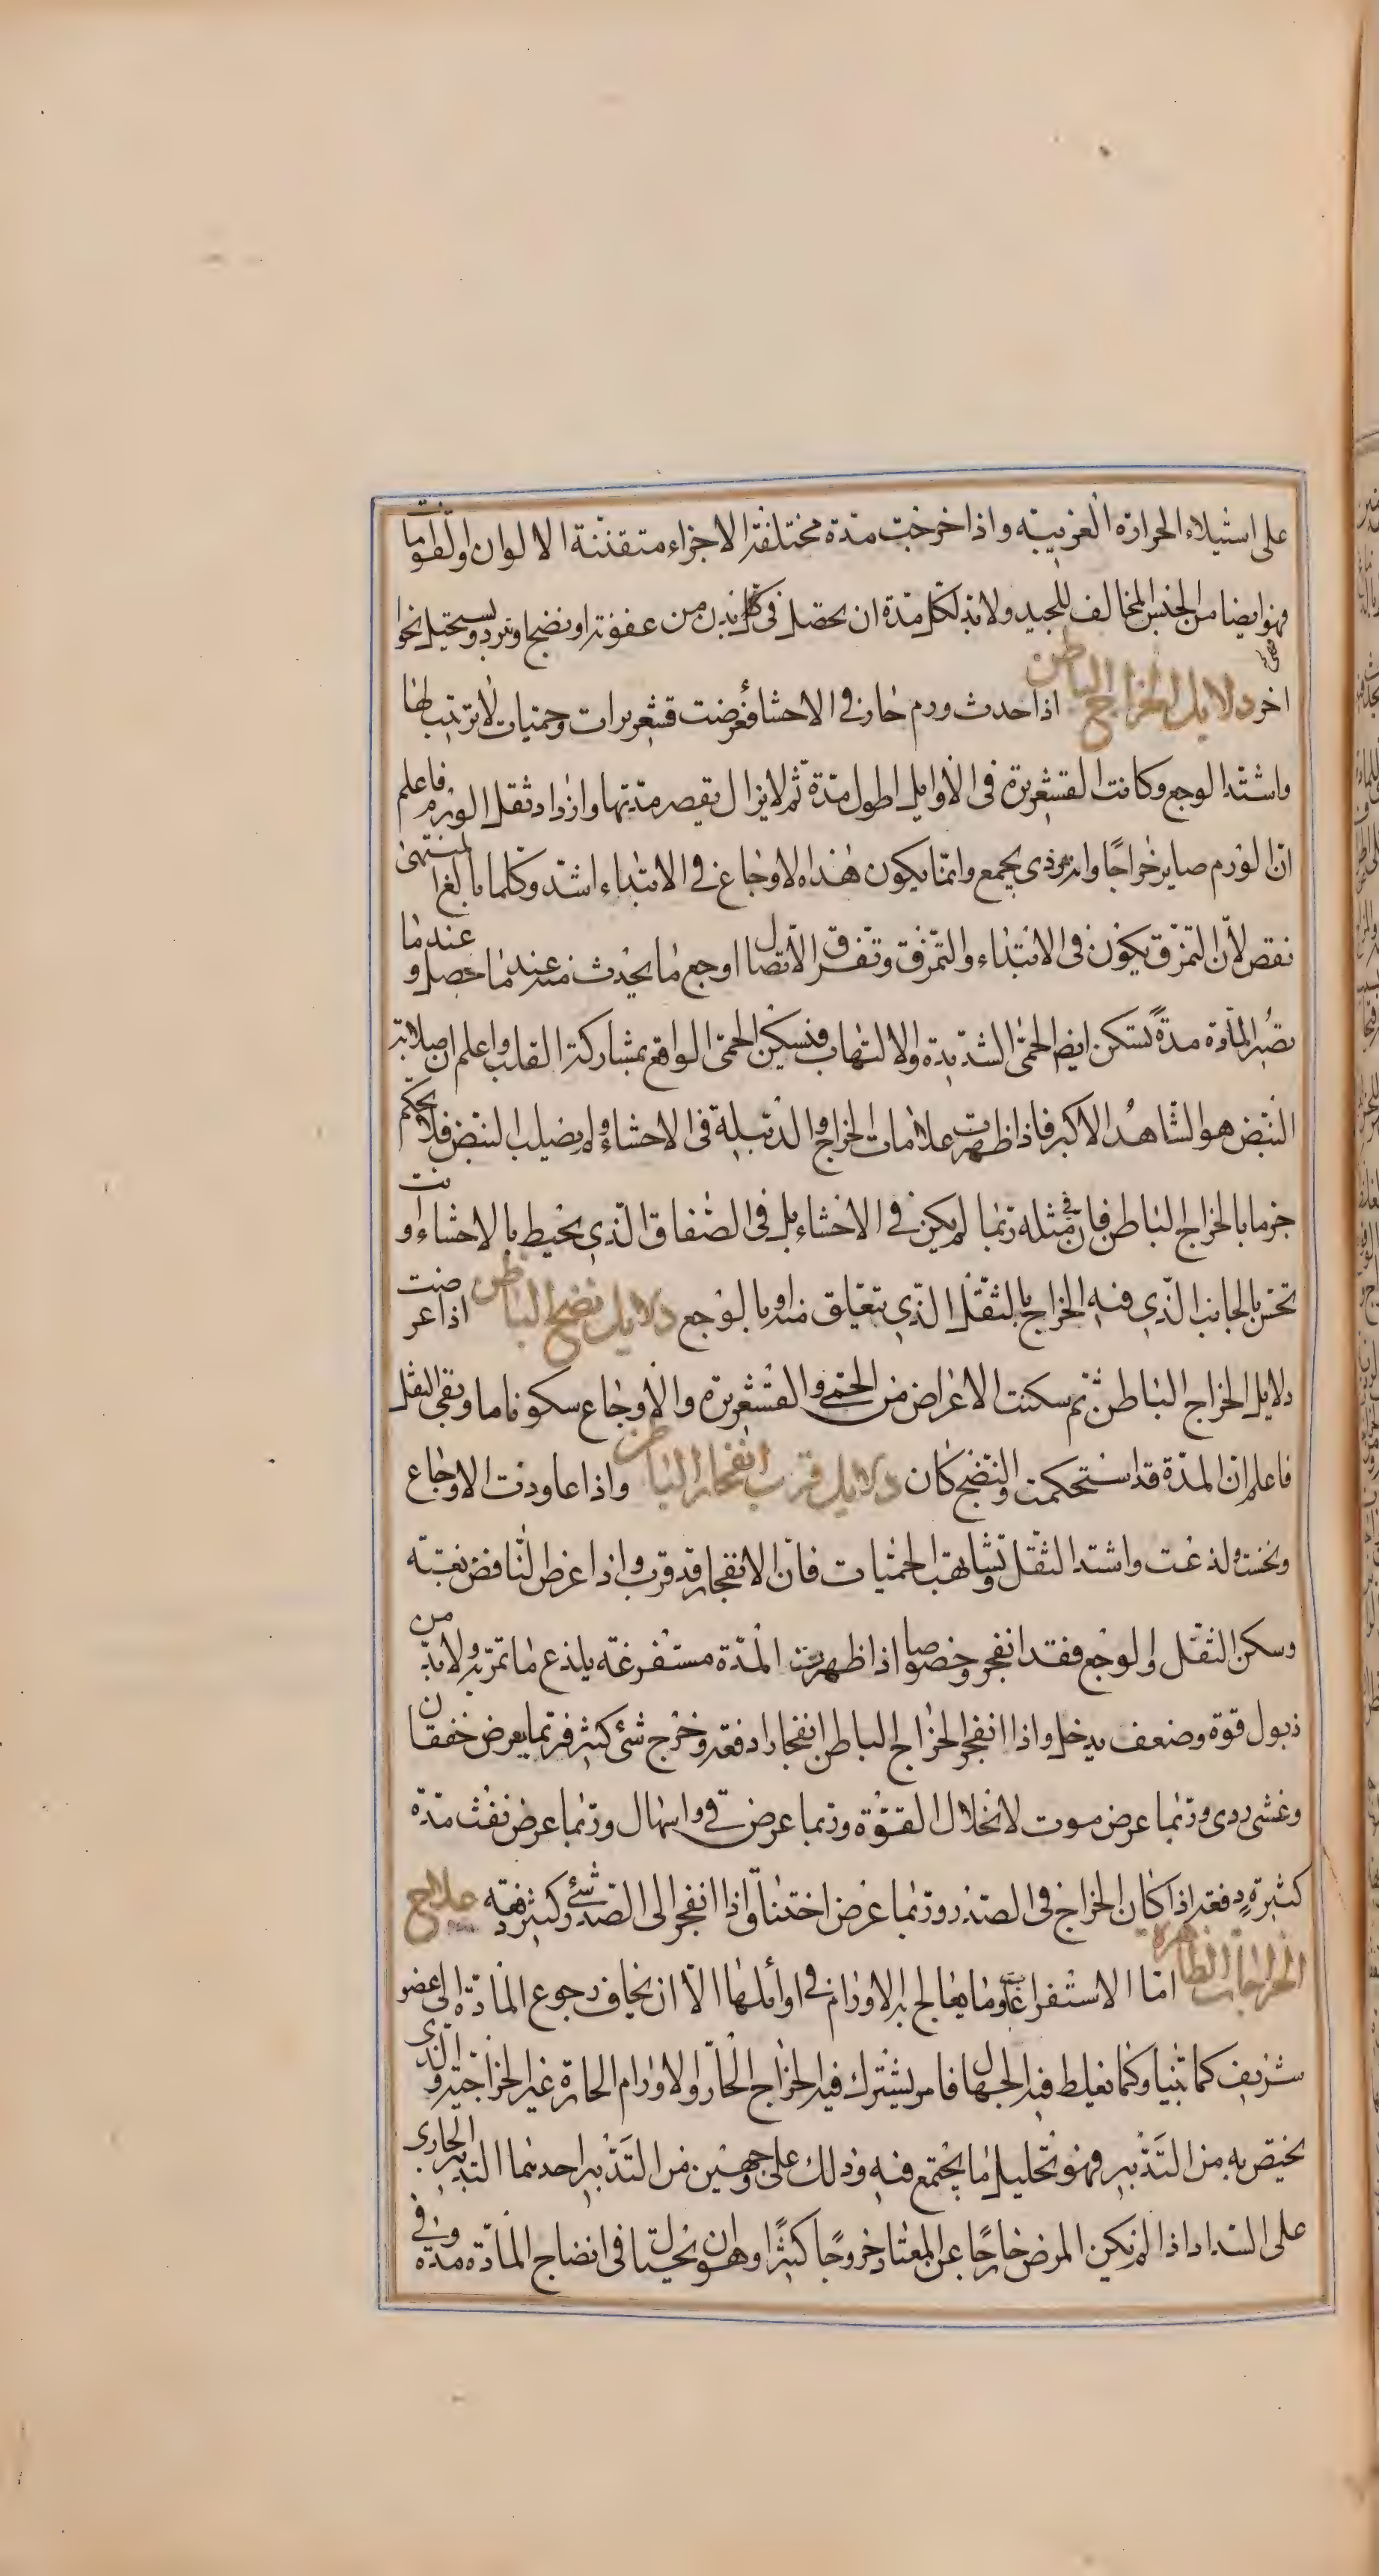 على استيلاء الحرارة الغريبية واذا خرجت مدة مختلفة الاجزاء متفننة الالوان والقوامات
فهو ايضا من الجنس المخالف للجيد ولا بد لكل مدة ان يحصل في كل بدن من عفونة او نضج او برد ويستحيل نحوا
اخر دلايل الخراج الباطن اذا حدث ورم حار في الاحشا فعرضت قشعريرات وحميات لا ترتيب لها
واشتد الوجع وكانت القشعريرة في الاوايل اطول مدة ثم لا يزال يقصر مدتها وازداد ثقل الورم فاعلم
ان الورم صاير خراجا وانه هوذى يجمع وانما يكون هذه الاوجاع في الابتداء اشد وكلما بالغ المنتهى
نقص لان التمزق يكون في الابتداء والتمزق وتفرق الاتصال اوجع ما يحدث منه عندما حصل وعندما
تصير المادة مدة تسكن ايضا الحمى الشديدة والالتهاب فتسكن الحمى الواقع بمشاركة القلب واعلم ان صلابة
النبض هو الشاهد الاكبر فاذا ظهرت علامات الخراج والدبيلة في الاحشاء ولم يصلب النبض فلا تحكم
جزما بالخراج الباطن فان في مثله ربما لم يكن في الاحشاء بل في الصفاق الذي يحيط بالاحشاء وانت
تحس بالجانب الذي فيه الخراج بالثقل الذي يتعلق منه او بالوجع دلايل نضج الباطن اذا عرضت
دلايل الخراج الباطن ثم سكنت الاعراض من الحمى والقشعريرة والاوجاع سكونا ما وبقى الثقل
فاعلم ان المدة قد استحكمت والنضج كان دلايل قرب انفجار الباطن واذا عاودت الاوجاع
ونخست ولذعت واشتد الثقل وتشابهت الحميات فان الانفجار قد قرب واذا عرض النافض بغتة
وسكن الثقل والوجع فقد انفجر وخصوصا اذا ظهرت المدة مستفرغة يلذع ما تمر به ولا بد من
ذبول قوة وضعف يدخل واذا انفجر الخراج الباطن انفجارا دفعة وخرج شئ كثير فربما يعرض خفقان
وغشى ردى وربما عرض موت لانحلال القوة وربما عرض قي واسهال وربما عرض نفث مدة
كثيرة دفعة اذا كان الخراج في الصدر وربما عرض اختناق واذا انفجر الى الصدر شئ كثير دفعة علاج
الخراجات الظاهرة اما الاستفراغ وما يعالج به الاورام في اوائلها الا ان يخاف رجوع المادة الى عضو
شريف كما بينا وكما يغلط فيه الجهال فامر يشترك فيه الخراج الحار والاورام الحارة غير الخراجية والذى
يختص به من التدبير فهو تحليل ما يجتمع فيه وذلك على وجهين من التدبير احدهما التدبير الجارى
على السداد اذا لم يكن المرض خارجا عن المعتاد خروجا كثيرا وهو ان يحتال في انضاج المادة مدة وفي